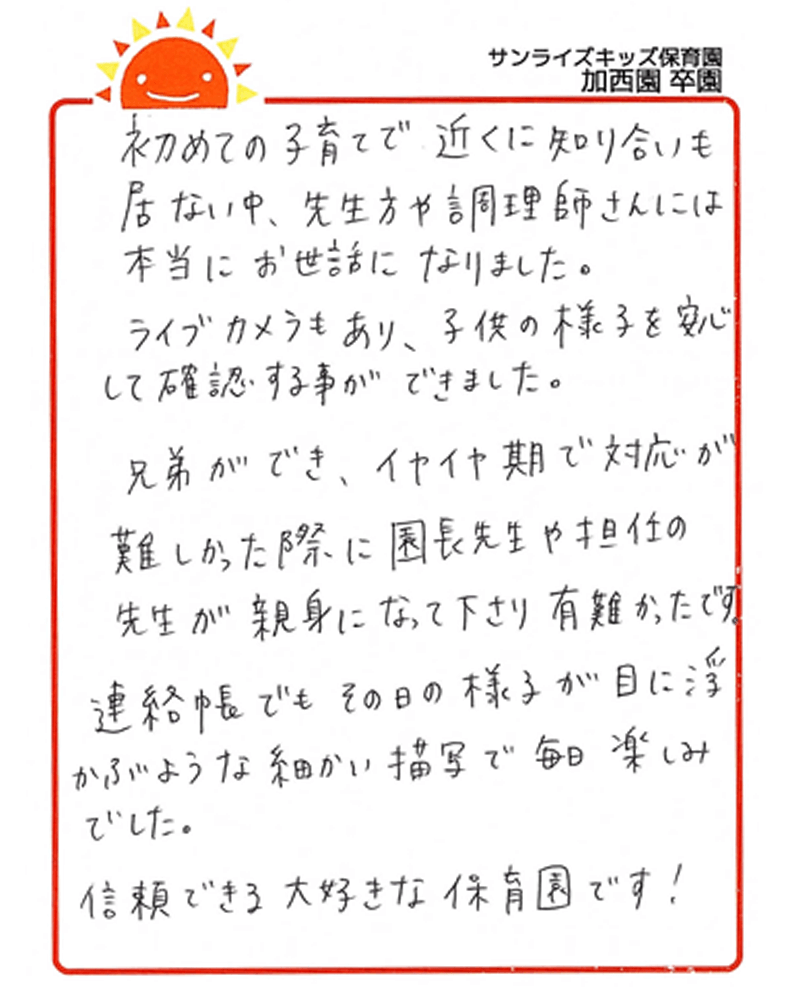 サンライズキッズ保育園
加西園 卒園
初めての子育てで 近くに知り合いも
居ない中、先生方や調理師さんには
本当にお世話になりました。
ライブカメラもあり、子供の様子を安心
して確認する事ができました。
兄弟ができ、イヤイヤ期で対応が
難しかった際に園長先生や担任の
先生が親身になって下さり有難かったです。
連絡帳でもその日の様子が目に浮
かぶような細かい描写で毎日楽しみ
でした。
信頼できる大好きな保育園です!